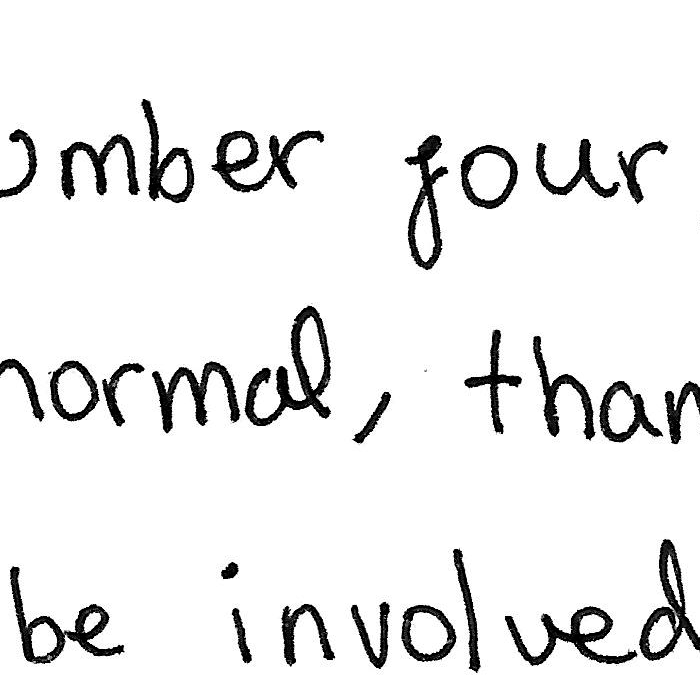 umber four
normal, than
be involved